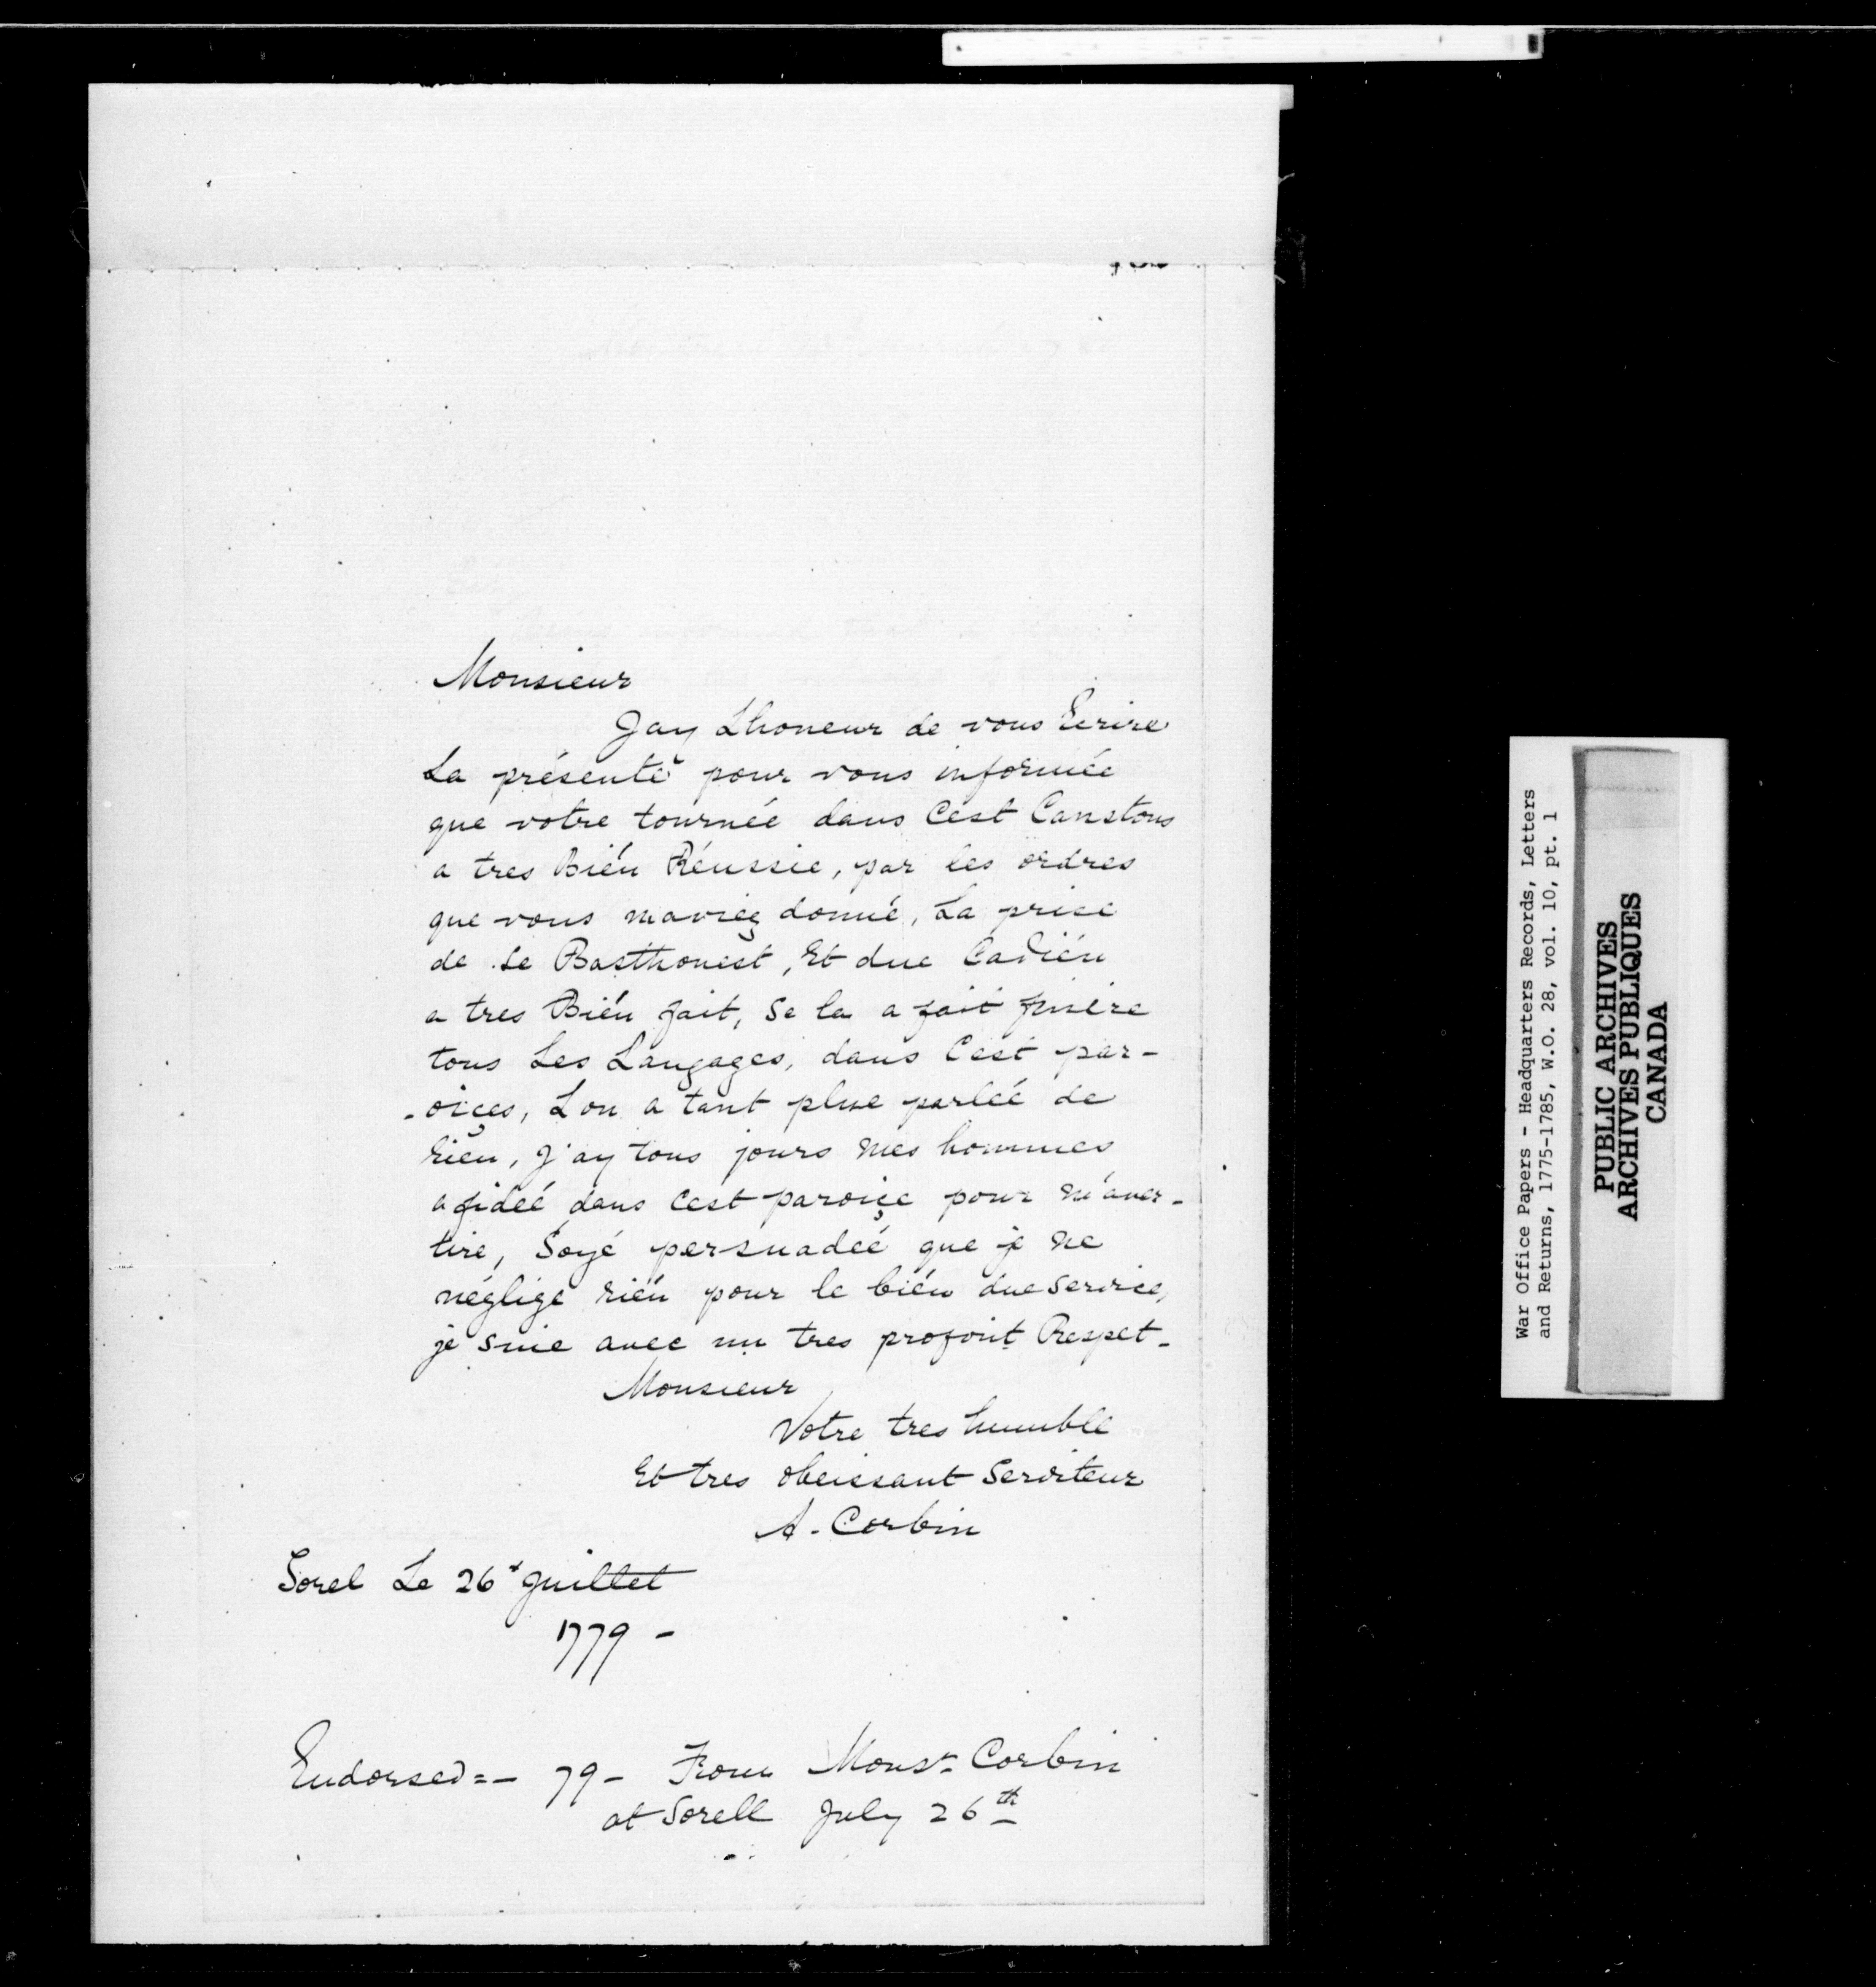 Monsieur
Jay Lhoneur de vous Ecrire
La présente pour vous informée
que votre tournée dans Cest Canstons
a tres Bién Réussie, par les ordres
que vous maviez donné, La prise
de Le Basthonest, Et due Cadién
a tres Bién fait, Se la a fait finire
tous Les Langages, dans Cest par-
-oiçes, Lon a tant plue parléé de
rién, J'ay tous jours mes hommes
afidéé dans Cest paroiçe pour m'aver-
tire, Soyé persuadéé que je ne
néglige rién pour le bién due service,
je suie avec un tres profont Respet-
Monsieur
Votre tres humble
Et tres obeissant Serviteur
A. Corbin
Sorel Le 26e Juillet
1779 -
Endorsed=- 79- From Monsr. Corbin
at Sorell July 26th
War Office Papers - Headquarters Records, Letters
and Returns, 1775-1785, W.O. 28, vol. 10, pt. 1
PUBLIC ARCHIVES
ARCHIVES PUBLIQUES
CANADA